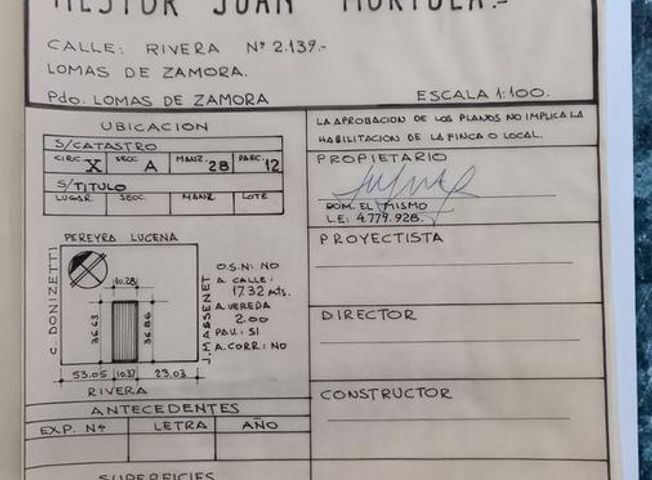 NESTOR JUAN MORTOLA.-
CALLE: RIVERA Nº 2.139.-
LOMAS DE ZAMORA.
Pdo. LOMAS DE ZAMORA
ESCALA 1:100.
UBICACION
S/CATASTRO
CIRC X SECC A MANZ. 28 PARC. 12
S/TITULO
LUGAR. SECC. MANZ LOTE
PEREYRA LUCENA
C. DONIZETTI
10.28
36.63
36.86
J. MASSENET
53.05 10.37 23.03
RIVERA
O.S.N: NO
A. CALLE:
17.32 mts.
A. VEREDA
2.00
PAV.: SI
A. CORR: NO
ANTECEDENTES
EXP. Nº LETRA AÑO
SUPERFICIES
LA APROBACION DE LOS PLANOS NO IMPLICA LA
HABILITACION DE LA FINCA O LOCAL.
PROPIETARIO
DOM. EL MISMO
L.E: 4.779.928.
PROYECTISTA
DIRECTOR
CONSTRUCTOR